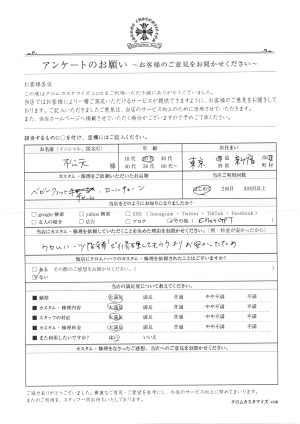 アンケートのお願い ～お客様のご意見をお聞かせください～
お客様各位
この度はクロムカスタマイズ.comをご利用いただき誠にありがとうございました。
当店ではお客様により一層ご満足いただけるサービスが提供できますように、お客様のご意見をお聞きして
おります。ご記入いただきましたご意見は、当店のサービス向上のために活用させていただきます。
また、当店ホームページへ掲載させていただく場合がございますので予めご了承ください。
該当するものに○を付け、空欄にはご記入ください。
お名前（イニシャル、匿名可） 年齢 お住まい
様 10代 20代 30代 東京
40代 50代 60代～
カスタム・修理をご依頼いただいたお品物 当店ご利用回数
はじめて 2回目 3回目以上
当店をどのようにお知りになりましたか？
□ google検索 □ yahoo検索 □ SNS（Instagram・Twitter・TikTok・Facebook）
□ 友人の紹介 □ 広告 □ ブログ その他（ChatGPT）
カスタム・修理を依頼していただくことを決めた理由をお聞かせください。（例：料金が安かったから）
クロムハーツ店舗で修理してもらうよりお安かったため
他店にクロムハーツのカスタム・修理を依頼されたことはございますか？
□ ある その際のご感想をお聞かせください。（ ）
ない
当店の満足度について教えてください。
■ 納期 大満足 満足 普通 やや不満 不満
■ カスタム・修理内容 大満足 満足 普通 やや不満 不満
■ スタッフの対応 大満足 満足 普通 やや不満 不満
■ カスタム・修理料金 大満足 満足 普通 やや不満 不満
■ また利用したいですか？ はい いいえ
カスタム・修理をなさったご感想、当店へのご意見をお聞かせください。
ご協力ありがとうございました。貴重なご意見・ご要望を参考にし、今後のサービス向上に努めてまいります。
またのご利用を、スタッフ一同お待ちしております。
クロムカスタマイズ.com